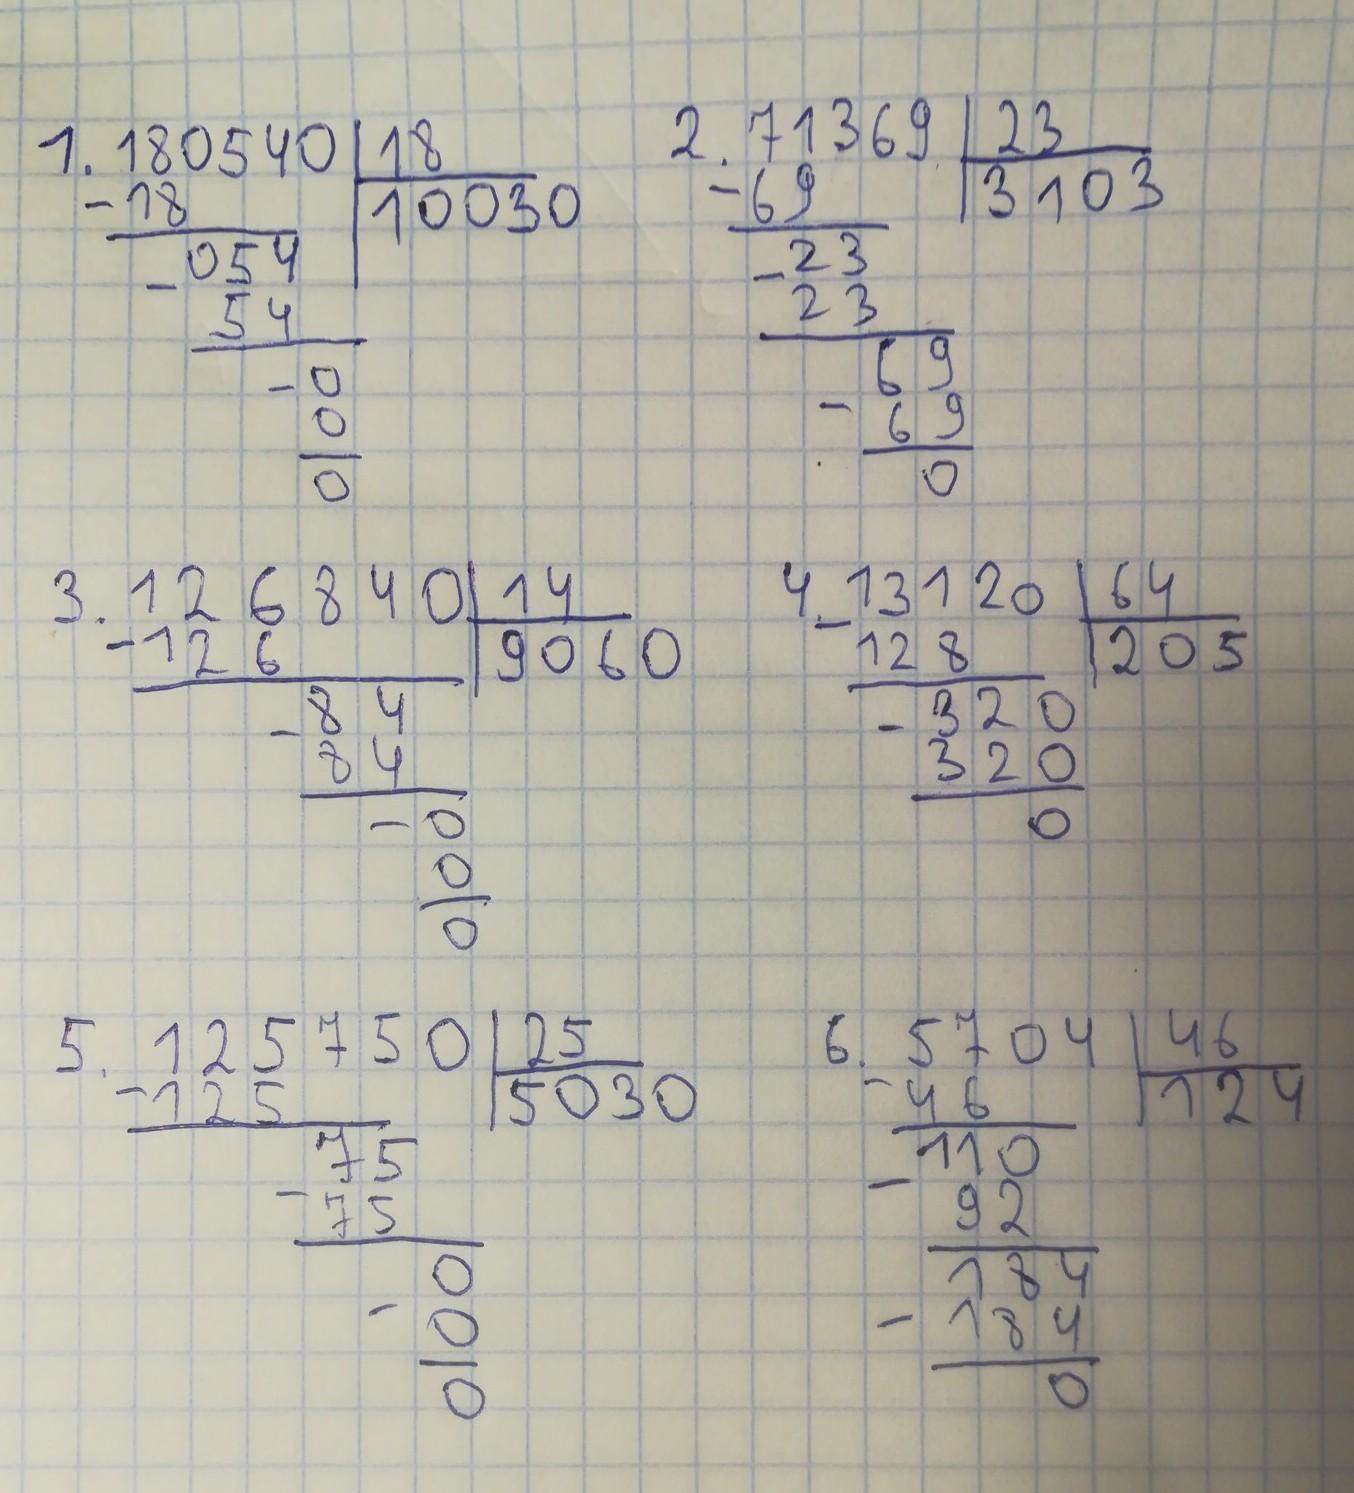 1. 180540 | 18
- 18 | 10030
- 054
54
- 0
0
0
2. 71369 | 23
- 69 | 3103
- 23
23
69
- 69
0
3. 126840 | 14
- 126 | 9060
- 84
84
- 0
0
0
4. - 13120 | 64
128 | 205
- 320
320
0
5. 125750 | 25
- 125 | 5030
75
- 75
0
- 0
0
6. 5704 | 46
- 46 | 124
110
- 92
184
- 184
0